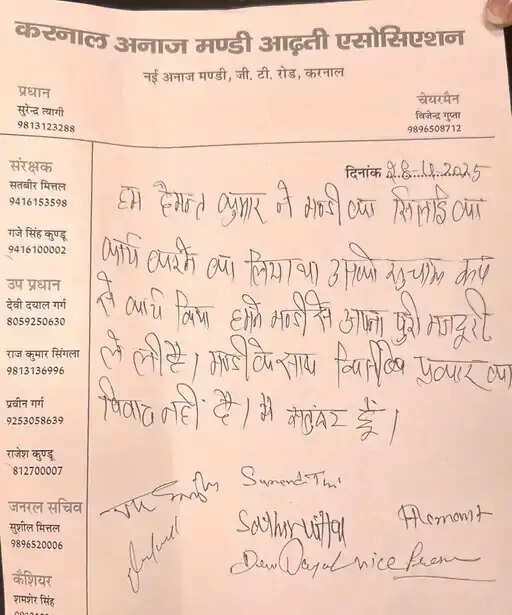 करनाल अनाज मण्डी आढ़ती एसोसिएशन
नई अनाज मण्डी, जी. टी. रोड, करनाल
प्रधान
सुरेन्द्र त्यागी
9813123288
चेयरमैन
विजेन्द्र गुप्ता
9896508712
संरक्षक
सतबीर मित्तल
9416153598
गजे सिंह कुण्डू
9416100002
उप प्रधान
देवी दयाल गर्ग
8059250630
राज कुमार सिंगला
9813136996
प्रवीन गर्ग
9253058639
राजेश कुण्डू
812700007
जनरल सचिव
सुशील मित्तल
9896520006
कैशियर
शमशेर सिंह
दिनांक 28.4.2025
हम हेमन्त कुमार ने मण्डी का सिलाई का
कार्य करने का लिया था उसको सुचारू रूप
से कार्य किया हमने मण्डी से अपनी पुरी मजदूरी
ले ली है। मण्डी के साथ किसी प्रकार का
विवाद नहीं है। मै सतुंष्ट हूँ।
Hemant